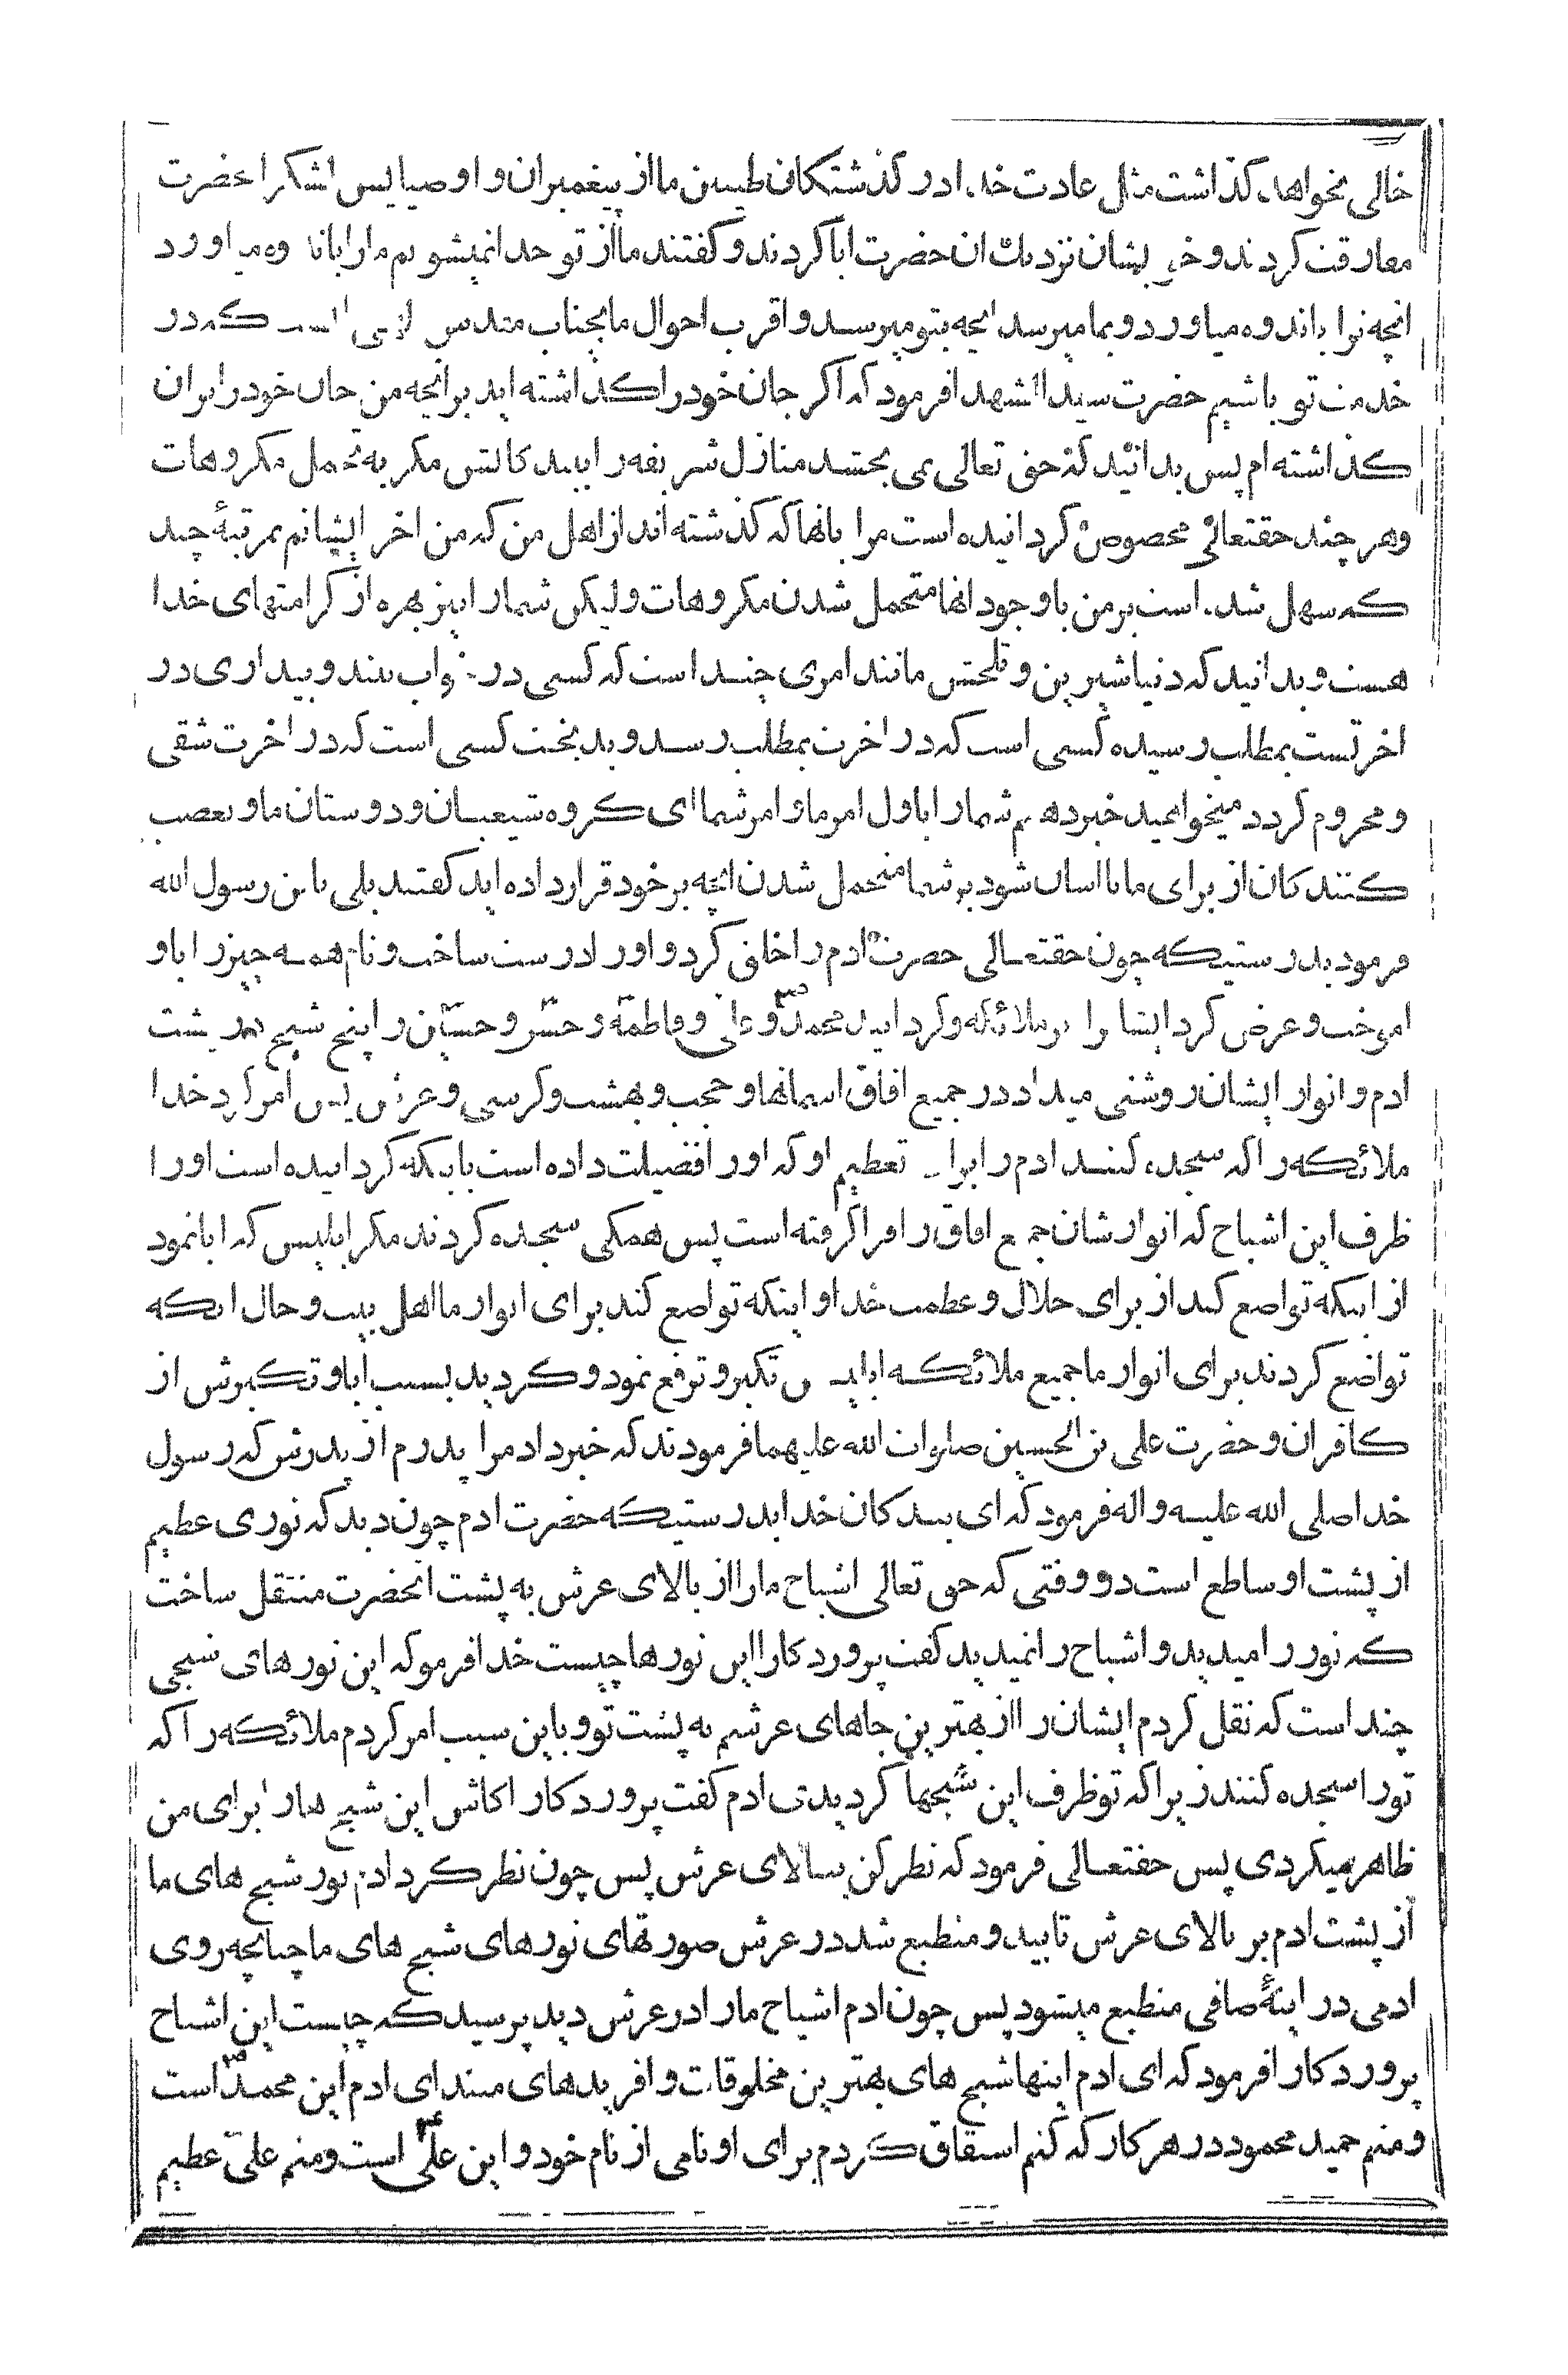 خالی نخواهد گذاشت مثل عادت خدا در گذشتگان طیبین ما از پیغمبران و اوصیا پس لشکر احضرت
مفارقت کردند و خویشان نزدیک ان حضرت ابا کردند و گفتند ما از تو جدا نمیشویم ما را باندوه میاورد
انچه ترا باندوه میاورد و بما میرسد انچه بتو میرسد و اقرب احوال ما بجناب مقدس الهی است که در
خدمت تو باشیم حضرت سید الشهدا فرمود که اگر جان خود را گذاشته اید بر انچه من جان خود را بران
گذاشته ام پس بدانید که حق تعالی می بخشد منازل شریفه را به بندگانش مگر به تحمل مکروهات
و هر چند حقتعالی مخصوص گردانیده است مرا بانها که گذشته اند از اهل من که من اخر ایشانم بمرتبهٔ چند
که سهل شده است بر من با وجود انها متحمل شدن مکروهات ولیکن شما را نیز بهره از کرامتهای خدا
هست و بدانید که دنیا شیرین و تلخش مانند امری چند است که کسی در خواب بیند و بیداری در
اخرتست بمطلب رسیده کسی است که در اخرت بمطلب رسد و بدبخت کسی است که در اخرت شقی
و محروم گردد میخواهید خبر دهم شما را باول امر ما و امر شما ای گروه شیعیان و دوستان ما و تعصب
کنندگان از برای ما تا اسان شود بر شما متحمل شدن انچه بر خود قرار داده اید گفتند بلی یا بن رسول الله
فرمود بدرستیکه چون حقتعالی حضرت ادم را خلق کرد و او را درست ساخت و نام همه چیز را باو
اموخت و عرض کرد ایشان را بر ملائکه و گردانید محمد و علی و فاطمه و حسن و حسین را پنج شبح در پشت
ادم و انوار ایشان روشنی میداد در جمیع افاق اسمانها و حجب و بهشت و کرسی و عرش پس امر کرد خدا
ملائکه را که سجده کنند ادم را برای تعظیم او که او را فضیلت داده است بانیکه گردانیده است او را
ظرف این اشباح که انوارشان جمیع افاق را فرا گرفته است پس همگی سجده کردند مگر ابلیس که ابا نمود
از اینکه تواضع کند از برای جلال و عظمت خدا و اینکه تواضع کند برای انوار ما اهل بیت و حال انکه
تواضع کردند برای انوار ما جمیع ملائکه ابا و تکبر و ترفع نمود و گردید بسبب ابا و تکبرش از
کافران و حضرت علی بن الحسین صلوات الله علیهما فرمودند که خبر داد مرا پدرم از پدرش که رسول
خدا صلی الله علیه و اله فرمود که ای بندگان خدا بدرستیکه حضرت ادم چون دید که نوری عظیم
از پشت او ساطع است در وقتی که حق تعالی اشباح ما را از بالای عرش به پشت انحضرت منتقل ساخت
که نور را میدید و اشباح را نمیدید گفت پروردگارا این نورها چیست خدا فرمو که این نورهای شبحی
چند است که نقل کردم ایشان را از بهترین جاهای عرشم به پشت تو و باین سبب امر کردم ملائکه را که
تو را سجده کنند زیرا که تو ظرف این شبحها گردیدی ادم گفت پروردگارا کاش این شبح ها را برای من
ظاهر میکردی پس حقتعالی فرمود که نظر کن ببالای عرش پس چون نظر کرد ادم نور شبح های ما
از پشت ادم بر بالای عرش تابید و منطبع شد در عرش صورتهای نورهای شبح های ما چنانچه روی
ادمی در اینهٔ صافی منطبع میشود پس چون ادم اشباح ما را در عرش دید پرسید که چیست این اشباح
پروردگارا فرمود که ای ادم اینها شبح های بهترین مخلوقات و افریدهای منند ای ادم این محمد است
و منم حمید محمود در هر کار که کنم اشتقاق کردم برای او نامی از نام خود و این علی است و منم علی عظیم